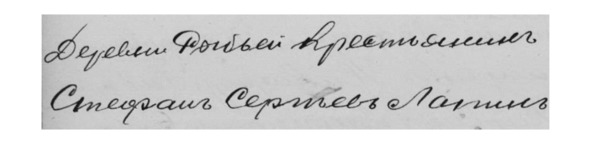 Деревни Рогьей крестьянинъ
Стефанъ Сергѣевъ Лапинъ